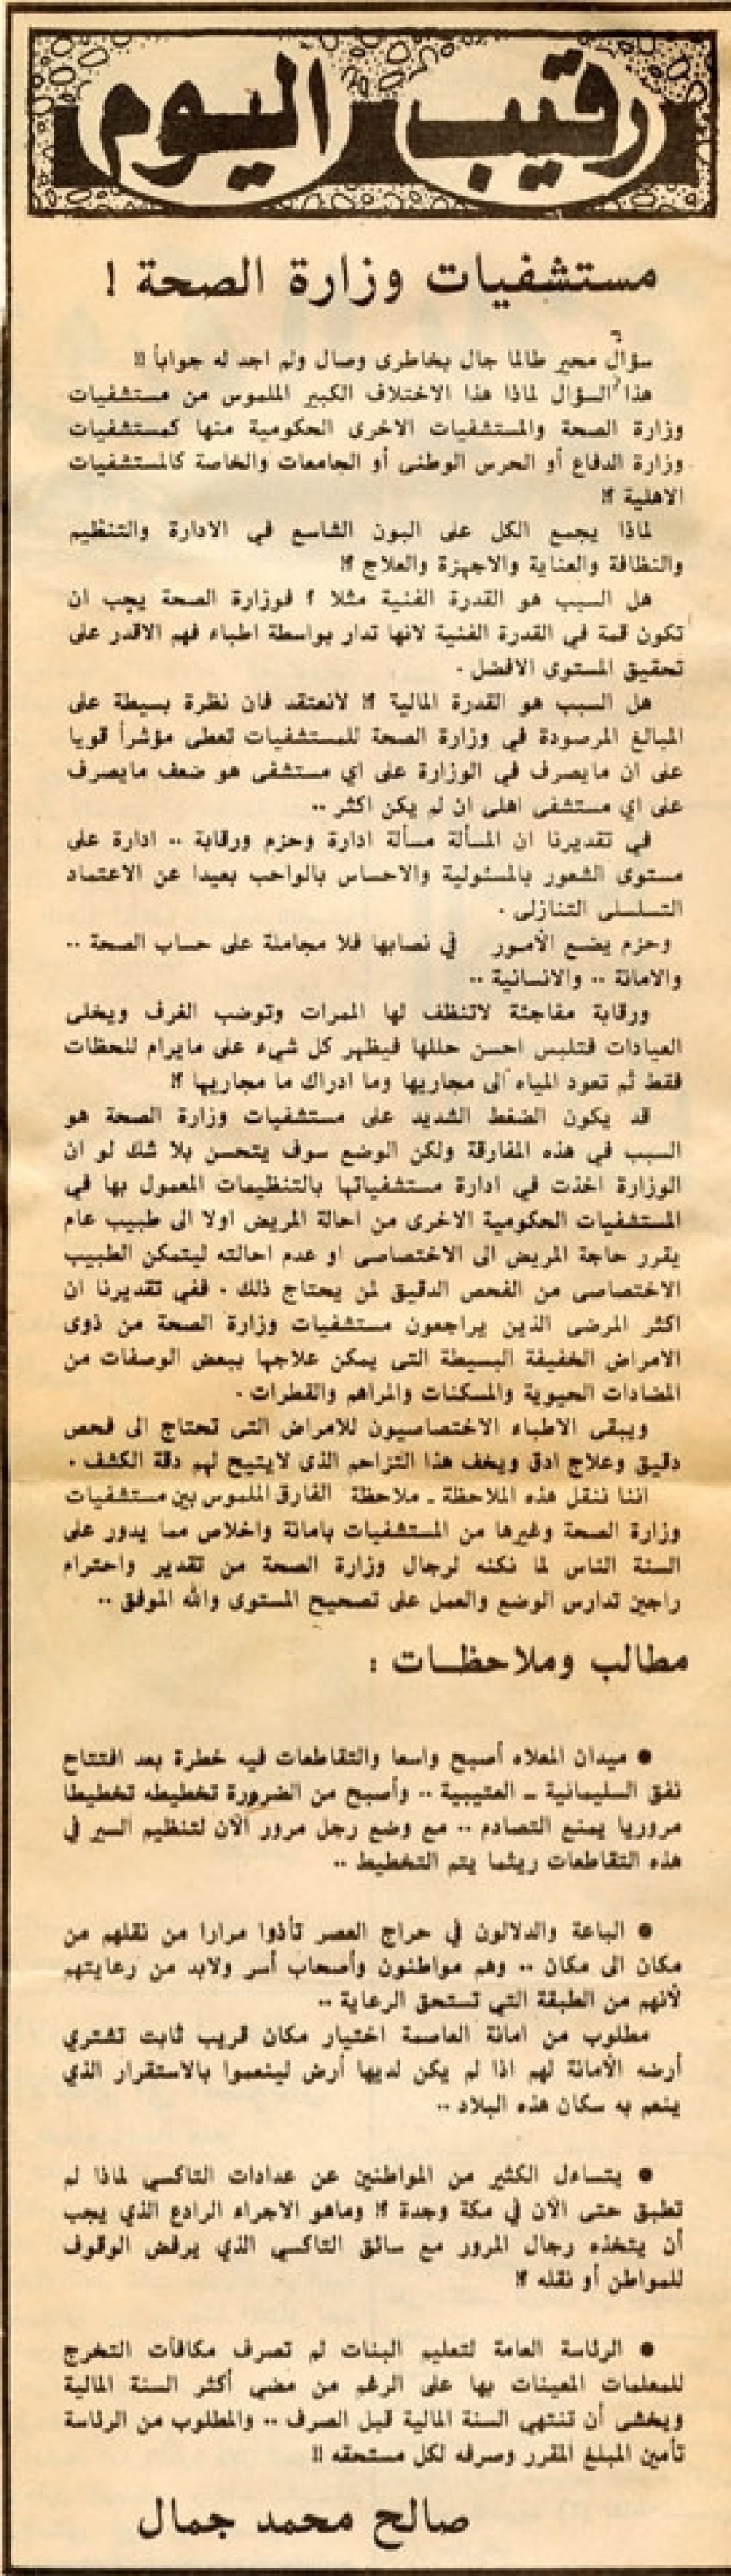 رقيب اليوم
مستشفيات وزارة الصحة !
سؤال محير طالما جال بخاطرى وصال ولم اجد له جواباً !!
هذا السؤال لماذا هذا الاختلاف الكبير الملموس من مستشفيات
وزارة الصحة والمستشفيات الاخرى الحكومية منها كمستشفيات
وزارة الدفاع أو الحرس الوطنى أو الجامعات والخاصة كالمستشفيات
الاهلية ؟!
لماذا يجمع الكل على البون الشاسع في الادارة والتنظيم
والنظافة والعناية والاجهزة والعلاج ؟!
هل السبب هو القدرة الفنية مثلا ؟ فوزارة الصحة يجب ان
تكون قمة في القدرة الفنية لانها تدار بواسطة اطباء فهم الاقدر على
تحقيق المستوى الافضل .
هل السبب هو القدرة المالية ؟! لانعتقد فان نظرة بسيطة على
المبالغ المرصودة في وزارة الصحة للمستشفيات تعطى مؤشراً قويا
على ان مايصرف في الوزارة على اي مستشفى هو ضعف مايصرف
على اي مستشفى اهلى ان لم يكن اكثر ..
في تقديرنا ان المسألة مسألة ادارة وحزم ورقابة .. ادارة على
مستوى الشعور بالمسئولية والاحساس بالواجب بعيدا عن الاعتماد
التسلسلى التنازلى .
وحزم يضع الأمور في نصابها فلا مجاملة على حساب الصحة ..
والامانة .. والانسانية ..
ورقابة مفاجئة لاتنظف لها الممرات وتوضب الغرف ويخلى
العيادات فتلبس احسن حللها فيظهر كل شيء على مايرام للحظات
فقط ثم تعود المياه الى مجاريها وما ادراك ما مجاريها ؟!
قد يكون الضغط الشديد على مستشفيات وزارة الصحة هو
السبب في هذه المفارقة ولكن الوضع سوف يتحسن بلا شك لو ان
الوزارة اخذت في ادارة مستشفياتها بالتنظيمات المعمول بها في
المستشفيات الحكومية الاخرى من احالة المريض اولا الى طبيب عام
يقرر حاجة المريض الى الاختصاصى او عدم احالته ليتمكن الطبيب
الاختصاصى من الفحص الدقيق لمن يحتاج ذلك . ففي تقديرنا ان
اكثر المرضى الذين يراجعون مستشفيات وزارة الصحة من ذوى
الامراض الخفيفة البسيطة التى يمكن علاجها ببعض الوصفات من
المضادات الحيوية والمسكنات والمراهم والقطرات .
ويبقى الاطباء الاختصاصيون للامراض التى تحتاج الى فحص
دقيق وعلاج ادق ويخف هذا التزاحم الذى لايتيح لهم دقة الكشف .
اننا ننقل هذه الملاحظة ـ ملاحظة الفارق الملموس بين مستشفيات
وزارة الصحة وغيرها من المستشفيات بامانة واخلاص مما يدور على
السنة الناس لما نكنه لرجال وزارة الصحة من تقدير واحترام
راجين تدارس الوضع والعمل على تصحيح المستوى والله الموفق ..
مطالب وملاحظـات :
● ميدان المعلاه أصبح واسعا والتقاطعات فيه خطرة بعد افتتاح
نفق السليمانية ـ العتيبية .. وأصبح من الضرورة تخطيطه تخطيطا
مروريا يمنع التصادم .. مع وضع رجل مرور الآن لتنظيم السير في
هذه التقاطعات ريثما يتم التخطيط ..
● الباعة والدلالون في حراج العصر تأذوا مرارا من نقلهم من
مكان الى مكان .. وهم مواطنون وأصحاب أسر ولابد من رعايتهم
لأنهم من الطبقة التي تستحق الرعاية ..
مطلوب من امانة العاصمة اختيار مكان قريب ثابت تشتري
أرضه الأمانة لهم اذا لم يكن لديها أرض لينعموا بالاستقرار الذي
ينعم به سكان هذه البلاد ..
● يتساءل الكثير من المواطنين عن عدادات التاكسي لماذا لم
تطبق حتى الآن في مكة وجدة ؟! وماهو الاجراء الرادع الذي يجب
أن يتخذه رجال المرور مع سائق التاكسي الذي يرفض الوقوف
للمواطن أو نقله ؟!
● الرئاسة العامة لتعليم البنات لم تصرف مكافآت التخرج
للمعلمات المعينات بها على الرغم من مضي أكثر السنة المالية
ويخشى أن تنتهي السنة المالية قبل الصرف .. والمطلوب من الرئاسة
تأمين المبلغ المقرر وصرفه لكل مستحقه !!
صالح محمد جمال